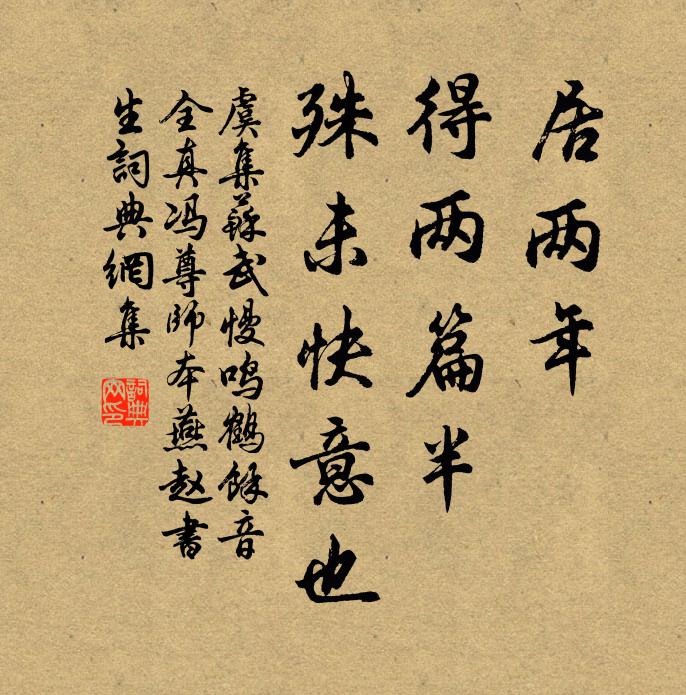 居两年
得两篇半
殊未快意也
虞集蘇武慢鸣鶴餘音
全真冯尊师本燕赵書
生詞典網集
詞典网印